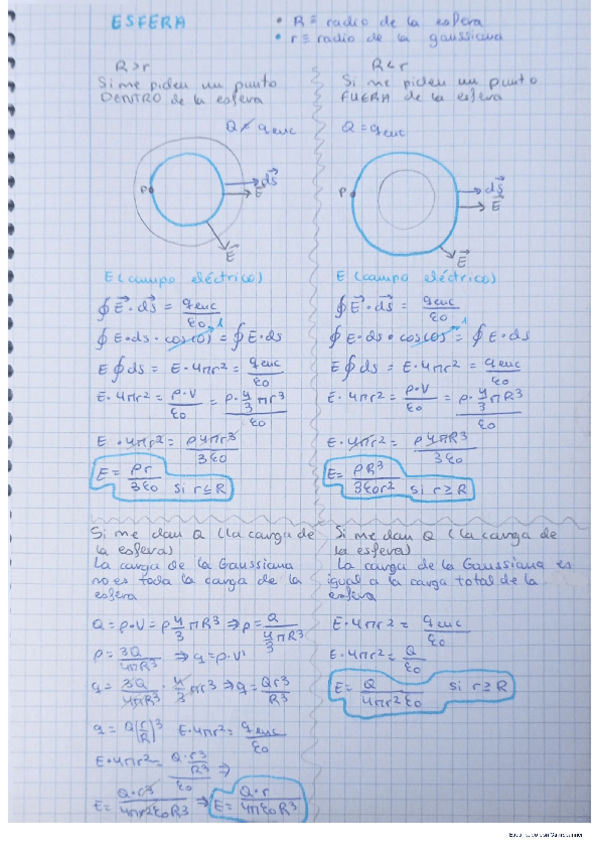 ESFERA
• R ≡ radio de la esfera
• r ≡ radio de la gaussiana
R > r
Si me piden un punto
DENTRO de la esfera
Q ≠ qenc
P
ds⃗
E⃗
E⃗
E (campo eléctrico)
∮ E⃗ · ds⃗ = qenc/ε0
∮ E · ds · cos(0) = ∮ E · ds
1
E ∮ ds = E · 4πr² = qenc/ε0
E · 4πr² = ρ·V/ε0 = ρ · 4/3 πr³/ε0
E · 4πr² = ρ4πr³/3ε0
E = ρr/3ε0 si r ≤ R
R < r
Si me piden un punto
FUERA de la esfera
Q = qenc
P
ds⃗
E⃗
E⃗
E (campo eléctrico)
∮ E⃗ · ds⃗ = qenc/ε0
∮ E · ds · cos(0) = ∮ E · ds
1
E ∮ ds = E · 4πr² = qenc/ε0
E · 4πr² = ρ·V/ε0 = ρ · 4/3 πR³/ε0
E · 4πr² = ρ4πR³/3ε0
E = ρR³/3ε0r² si r ≥ R
Si me dan Q (la carga de
la esfera)
La carga de la Gaussiana
no es toda la carga de la
esfera
Q = ρ · V = ρ 4/3 πR³ ⇒ ρ = Q/4/3 πR³
ρ = 3Q/4πR³ ⇒ q = ρ · V'
q = 3Q/4πR³ · 4/3 πr³ ⇒ q = Qr³/R³
q = Q(r/R)³ E · 4πr² = qenc/ε0
E · 4πr² = Q · r³/R³/ε0 ⇒
E = Q · r³/4πr²ε0R³ ⇒ E = Q · r/4πε0R³
Si me dan Q (la carga de
la esfera)
La carga de la Gaussiana es
igual a la carga total de la
esfera
E · 4πr² = qenc/ε0
E · 4πr² = Q/ε0
E = Q/4πr²ε0 si r ≥ R